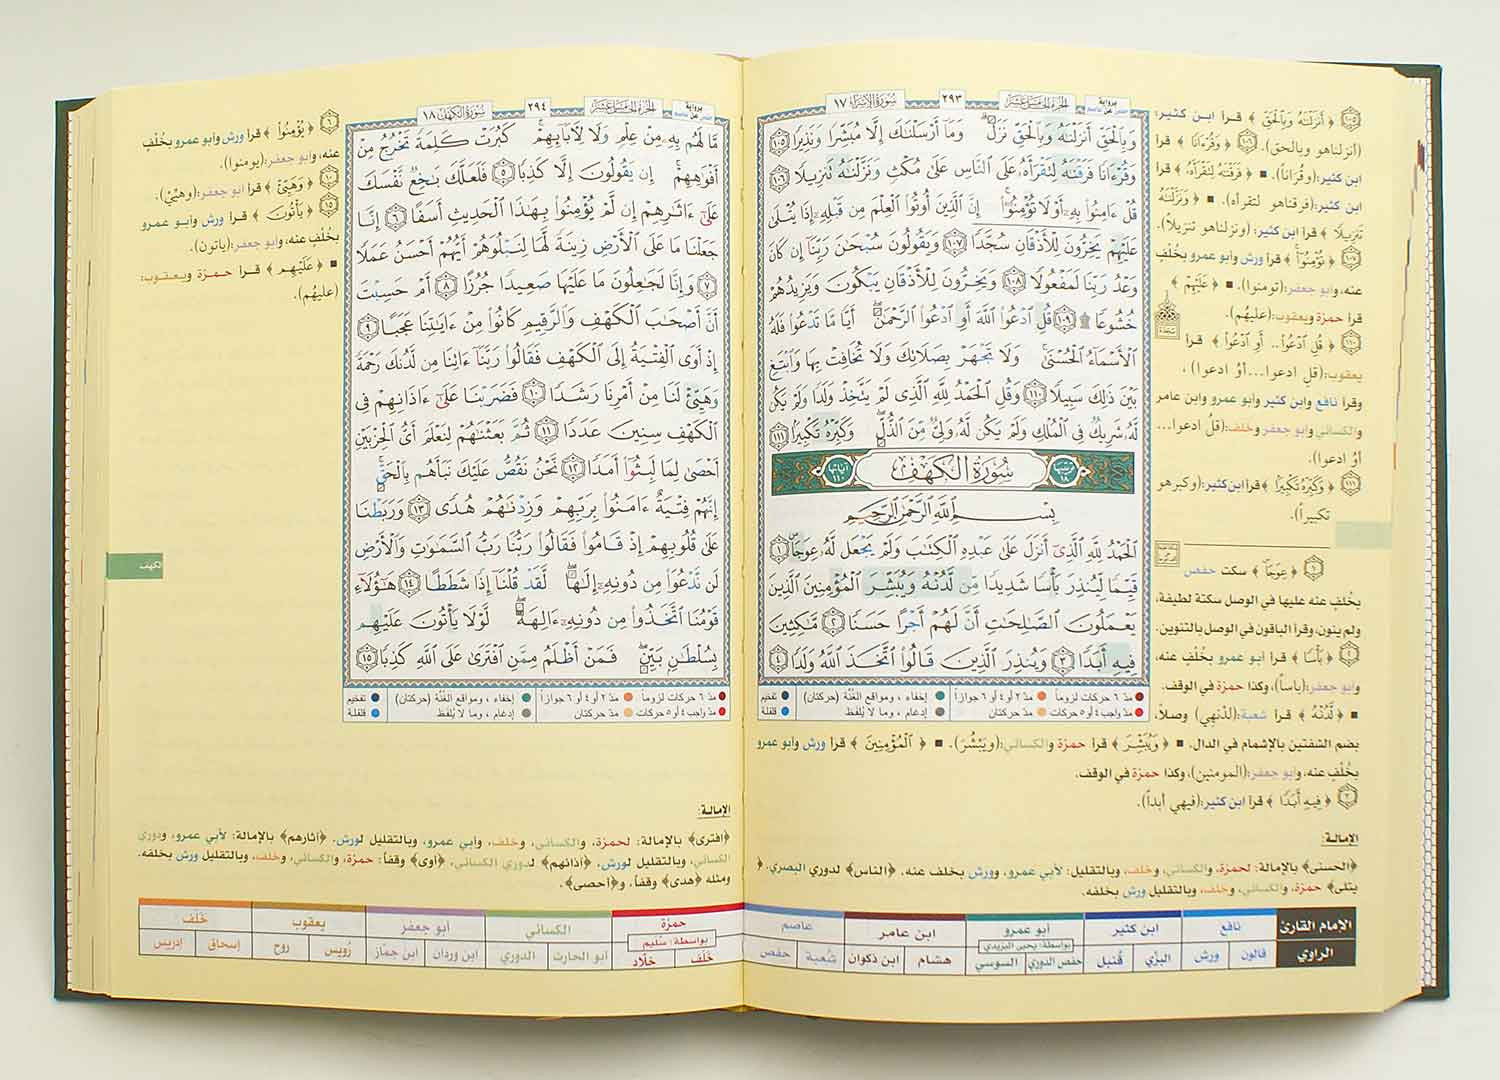 برواية حفص عن عاصم
الجزء الخامس عشر
٢٩٣
سورة الإسراء ١٧
وَبِٱلْحَقِّ أَنزَلْنَٰهُ وَبِٱلْحَقِّ نَزَلَ ۗ وَمَآ أَرْسَلْنَٰكَ إِلَّا مُبَشِّرًا وَنَذِيرًا ١٠٥
وَقُرْءَانًا فَرَقْنَٰهُ لِتَقْرَأَهُۥ عَلَى ٱلنَّاسِ عَلَىٰ مُكْثٍ وَنَزَّلْنَٰهُ تَنزِيلًا ١٠٦
قُلْ ءَامِنُوا۟ بِهِۦٓ أَوْ لَا تُؤْمِنُوٓا۟ ۚ إِنَّ ٱلَّذِينَ أُوتُوا۟ ٱلْعِلْمَ مِن قَبْلِهِۦٓ إِذَا يُتْلَىٰ
عَلَيْهِمْ يَخِرُّونَ لِلْأَذْقَانِ سُجَّدًا ١٠٧ وَيَقُولُونَ سُبْحَٰنَ رَبِّنَآ إِن كَانَ
وَعْدُ رَبِّنَا لَمَفْعُولًا ١٠٨ وَيَخِرُّونَ لِلْأَذْقَانِ يَبْكُونَ وَيَزِيدُهُمْ
خُشُوعًا ۩ ١٠٩ قُلِ ٱدْعُوا۟ ٱللَّهَ أَوِ ٱدْعُوا۟ ٱلرَّحْمَٰنَ ۖ أَيًّا مَّا تَدْعُوا۟ فَلَهُ
ٱلْأَسْمَآءُ ٱلْحُسْنَىٰ ۚ وَلَا تَجْهَرْ بِصَلَاتِكَ وَلَا تُخَافِتْ بِهَا وَٱبْتَغِ
بَيْنَ ذَٰلِكَ سَبِيلًا ١١٠ وَقُلِ ٱلْحَمْدُ لِلَّهِ ٱلَّذِى لَمْ يَتَّخِذْ وَلَدًا وَلَمْ يَكُن
لَّهُۥ شَرِيكٌ فِى ٱلْمُلْكِ وَلَمْ يَكُن لَّهُۥ وَلِىٌّ مِّنَ ٱلذُّلِّ ۖ وَكَبِّرْهُ تَكْبِيرًۢا ١١١
ترتيبها ١٨ سورة الكهف آياتها ١١٠
بِسْمِ ٱللَّهِ ٱلرَّحْمَٰنِ ٱلرَّحِيمِ
ٱلْحَمْدُ لِلَّهِ ٱلَّذِىٓ أَنزَلَ عَلَىٰ عَبْدِهِ ٱلْكِتَٰبَ وَلَمْ يَجْعَل لَّهُۥ عِوَجَا ۜ ١
قَيِّمًا لِّيُنذِرَ بَأْسًا شَدِيدًا مِّن لَّدُنْهُ وَيُبَشِّرَ ٱلْمُؤْمِنِينَ ٱلَّذِينَ
يَعْمَلُونَ ٱلصَّٰلِحَٰتِ أَنَّ لَهُمْ أَجْرًا حَسَنًا ٢ مَّٰكِثِينَ
فِيهِ أَبَدًا ٣ وَيُنذِرَ ٱلَّذِينَ قَالُوا۟ ٱتَّخَذَ ٱللَّهُ وَلَدًا ٤
مدّ ٦ حركات لزوماً مدّ ٢ أو ٤ أو ٦ جوازاً إخفاء ، ومواقع الغُنّة (حركتان) تفخيم
مدّ واجب ٤ أو ٥ حركات مدّ حركتان إدغام ، وما لا يُلفظ قلقلة
١٠٥ ﴿ أَنزَلْنَٰهُ وَبِٱلْحَقِّ ﴾ قرأ ابن كثير:
(أنزلناهو وبالحق). ١٠٦ ﴿ وَقُرْءَانًا ﴾ قرأ
ابن كثير:(وقُرَاناً). ■ ﴿ فَرَقْنَٰهُ لِتَقْرَأَهُۥ ﴾ قرأ
ابن كثير:(فرقناهو لتقرأه). ■ ﴿ وَنَزَّلْنَٰهُ
تَنزِيلًا ﴾ قرأ ابن كثير: (ونزلناهو تنزيلاً).
١٠٧ ﴿ تُؤْمِنُوٓا۟ ﴾ قرأ ورش وأبو عمرو بخُلفٍ
عنه، وأبو جعفر:(تومنوا). ■ ﴿ عَلَيْهِمْ ﴾
قرأ حمزة ويعقوب:(عليهُم).
سجدة
١١٠ ﴿ قُلِ ٱدْعُوا۟.. أَوِ ٱدْعُوا۟ ﴾ قرأ
يعقوب:(قلِ ادعوا...أوُ ادعوا) ،
وقرأ نافع وابن كثير وأبو عمرو وابن عامر
والكسائي وأبو جعفر وخلف:(قلُ ادعوا...
أوُ ادعوا).
١١١ ﴿ وَكَبِّرْهُ تَكْبِيرًا ﴾ قرأ ابن كثير:(وكبرهو
تكبيراً).
١ ﴿ عِوَجَا ﴾ سكت حفص
بخُلفٍ عنه عليها في الوصل سكتة لطيفة،
ولم ينون، وقرأ الباقون في الوصل بالتنوين.
﴿ بَأْسًا ﴾ قرأ أبو عمرو بخُلفٍ عنه،
وأبو جعفر:(باساً)، وكذا حمزة في الوقف.
■ ﴿ لَّدُنْهُ ﴾ قرأ شعبة:(لدنهي) وصلاً،
بضم الشفتين بالإشمام في الدال. ■ ﴿ وَيُبَشِّرَ ﴾ قرأ حمزة والكسائي:(ويَبْشُرَ). ■ ﴿ ٱلْمُؤْمِنِينَ ﴾ قرأ ورش وأبو عمرو
بخُلفٍ عنه، وأبو جعفر:(المومنين)، وكذا حمزة في الوقف.
﴿ فِيهِ أَبَدًا ﴾ قرأ ابن كثير:(فيهي أبداً).
الإمالة:
﴿الحسنى﴾ بالإمالة: لحمزة، والكسائي، وخلف، وبالتقليل: لأبي عمرو، وورش بخلف عنه. ﴿الناس﴾ لدوري البصري. ﴿
يتلى﴾ حمزة، والكسائي، وخلف، وبالتقليل ورش بخلفه.
الإمام القارئ نافع ابن كثير أبو عمرو بواسطة: يحيى اليزيدي ابن عامر عاصم
الراوي قالون ورش البزّي قُنبل حفص الدوري السوسي هشام ابن ذكوان شُعبة حفص
الجزء الخامس عشر
٢٩٤
سورة الكهف ١٨
مَّا لَهُم بِهِۦ مِنْ عِلْمٍ وَلَا لِءَابَآئِهِمْ ۚ كَبُرَتْ كَلِمَةً تَخْرُجُ مِنْ
أَفْوَٰهِهِمْ ۚ إِن يَقُولُونَ إِلَّا كَذِبًا ٥ فَلَعَلَّكَ بَٰخِعٌ نَّفْسَكَ
عَلَىٰٓ ءَاثَٰرِهِمْ إِن لَّمْ يُؤْمِنُوا۟ بِهَٰذَا ٱلْحَدِيثِ أَسَفًا ٦ إِنَّا
جَعَلْنَا مَا عَلَى ٱلْأَرْضِ زِينَةً لَّهَا لِنَبْلُوَهُمْ أَيُّهُمْ أَحْسَنُ عَمَلًا
٧ وَإِنَّا لَجَٰعِلُونَ مَا عَلَيْهَا صَعِيدًا جُرُزًا ٨ أَمْ حَسِبْتَ
أَنَّ أَصْحَٰبَ ٱلْكَهْفِ وَٱلرَّقِيمِ كَانُوا۟ مِنْ ءَايَٰتِنَا عَجَبًا ٩
إِذْ أَوَى ٱلْفِتْيَةُ إِلَى ٱلْكَهْفِ فَقَالُوا۟ رَبَّنَآ ءَاتِنَا مِن لَّدُنكَ رَحْمَةً
وَهَيِّئْ لَنَا مِنْ أَمْرِنَا رَشَدًا ١٠ فَضَرَبْنَا عَلَىٰٓ ءَاذَانِهِمْ فِى
ٱلْكَهْفِ سِنِينَ عَدَدًا ١١ ثُمَّ بَعَثْنَٰهُمْ لِنَعْلَمَ أَىُّ ٱلْحِزْبَيْنِ
أَحْصَىٰ لِمَا لَبِثُوٓا۟ أَمَدًا ١٢ نَّحْنُ نَقُصُّ عَلَيْكَ نَبَأَهُم بِٱلْحَقِّ ۚ
إِنَّهُمْ فِتْيَةٌ ءَامَنُوا۟ بِرَبِّهِمْ وَزِدْنَٰهُمْ هُدًى ١٣ وَرَبَطْنَا
عَلَىٰ قُلُوبِهِمْ إِذْ قَامُوا۟ فَقَالُوا۟ رَبُّنَا رَبُّ ٱلسَّمَٰوَٰتِ وَٱلْأَرْضِ
لَن نَّدْعُوَا۟ مِن دُونِهِۦٓ إِلَٰهًا ۖ لَّقَدْ قُلْنَآ إِذًا شَطَطًا ١٤ هَٰٓؤُلَآءِ
قَوْمُنَا ٱتَّخَذُوا۟ مِن دُونِهِۦٓ ءَالِهَةً ۖ لَّوْلَا يَأْتُونَ عَلَيْهِم
بِسُلْطَٰنٍۭ بَيِّنٍ ۖ فَمَنْ أَظْلَمُ مِمَّنِ ٱفْتَرَىٰ عَلَى ٱللَّهِ كَذِبًا ١٥
مدّ ٦ حركات لزوماً مدّ ٢ أو ٤ أو ٦ جوازاً إخفاء ، ومواقع الغُنّة (حركتان) تفخيم
مدّ واجب ٤ أو ٥ حركات مدّ حركتان إدغام ، وما لا يُلفظ قلقلة
٦ ﴿ يُؤْمِنُوا۟ ﴾ قرأ ورش وأبو عمرو بخُلفٍ
عنه، وأبو جعفر:(يومنوا).
١٠ ﴿ وَهَيِّئْ ﴾ قرأ أبو جعفر:(وهيّيْ).
١٥ ﴿ يَأْتُونَ ﴾ قرأ ورش وأبو عمرو
بخُلفٍ عنه، وأبو جعفر:(ياتون).
■ ﴿ عَلَيْهِم ﴾ قرأ حمزة ويعقوب:
(عليهُم).
الكهف
الإمالة:
﴿افترى﴾ بالإمالة: لحمزة، والكسائي، وخلف، وأبي عمرو، وبالتقليل لورش. ﴿آثارهم﴾ بالإمالة: لأبي عمرو، ودوري
الكسائي، وبالتقليل لورش. ﴿آذانهم﴾ لدوري الكسائي. ﴿أوى﴾ وقفاً: حمزة، والكسائي، وخلف، وبالتقليل ورش بخلفه.
ومثله ﴿هدى﴾ وقفاً، و﴿أحصى﴾.
حمزة بواسطة: سُليم الكسائي أبو جعفر يعقوب خَلَف
خَلَف خلّاد أبو الحارث الدوري ابن وردان ابن جمّاز رُويس روح إسحاق إدريس